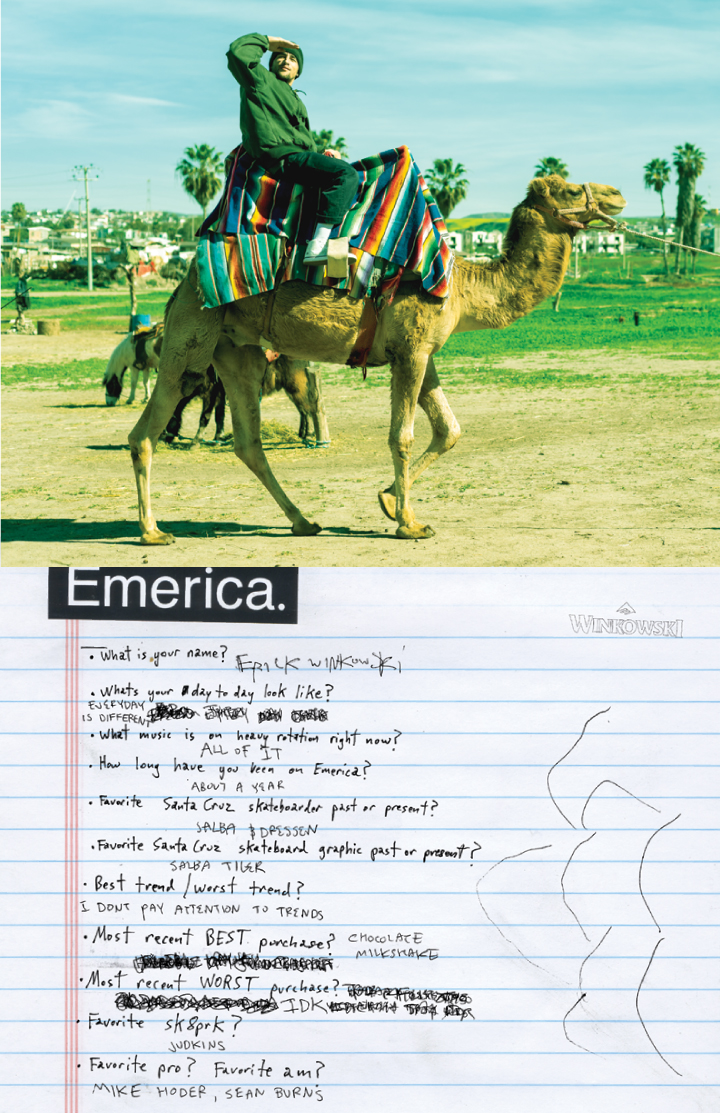 Emerica.
WINKOWSKI
• What is your name? ERICK WINKOWSKI
• Whats your day to day look like?
EVERYDAY
IS DIFFERENT
• What music is on heavy rotation right now?
ALL OF IT
• How long have you been on Emerica?
ABOUT A YEAR
• Favorite Santa Cruz skateboarder past or present?
SALBA & DRESSEN
• Favorite Santa Cruz skateboard graphic past or present?
SALBA TIGER
• Best trend / worst trend?
I DONT PAY ATTENTION TO TRENDS
• Most recent BEST purchase? CHOCOLATE
MILKSHAKE
• Most recent WORST purchase?
IDK
• Favorite sk8prk?
JUDKINS
• Favorite pro? Favorite am?
MIKE HODER, SEAN BURNS